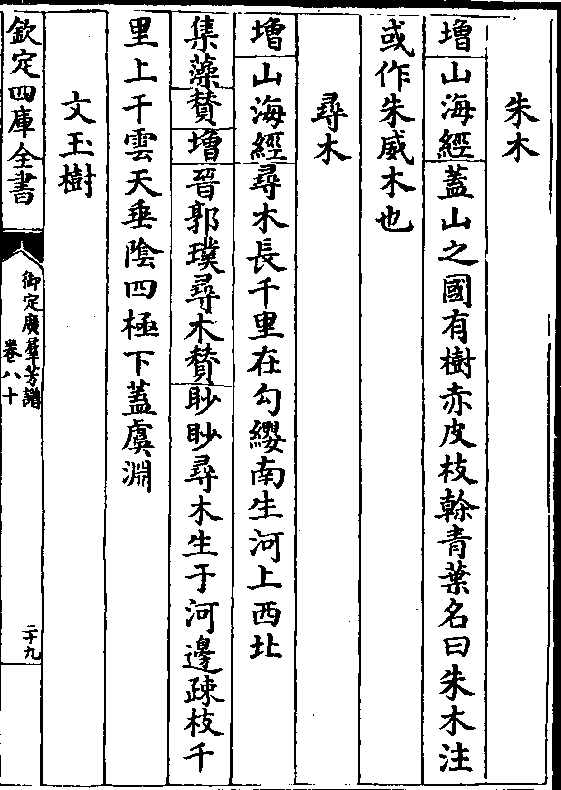 朱木
增山海經蓋山之國有樹赤皮枝榦青葉名曰朱木注
或作朱威木也
尋木
增山海經尋木長千里在勾纓南生河上西北
集藻贊增晉郭璞尋木贊眇眇尋木生于河邊疎枝千
里上干雲天垂陰四極下蓋虞淵
文玉樹
欽定四庫全書
御定廣羣芳譜
卷八十
二十九